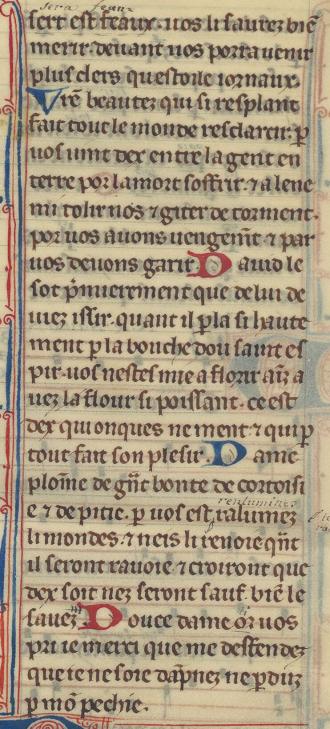 sera feaux
serr est feaux. uos li saurez biē
merir deuant uos porra uenir
plus clers questoile iornaux.
Vrē beautez qui si resplant
fait tout le monde resclarcir. p̱
uos uint dex entre la gent en
terre por la mort soffrir. ⁊ a lene
mi tolir nos ⁊ giter de torment.
por uos auons uengem̄t ⁊ par
uos deuons garir. Dauid le
sot p̄mierement que de lui de
uiez issir. quant il ꝑla si haute
ment ꝑ la bouche dou saint es
pir. uos nestes mie a florir ainz a
uez la flour si poissant. ce est
dex qui onques ne ment ⁊ qui p̱
tout fait son plesir. Dame
ploīne de gn̄t bonte de cortoisi
renlumines
e ⁊ de pitie. ꝑ uos est ralumez
li mondes. ⁊ neis li renoie qn̄t
il seront rauoie ⁊ croiront que
dex soit nez seront sauf. biē le
sauez Douce dame or uos
pri ie merci que me deffendez
que ie ne soie dāpnez ne ꝑduz
ꝑ mō pechie.